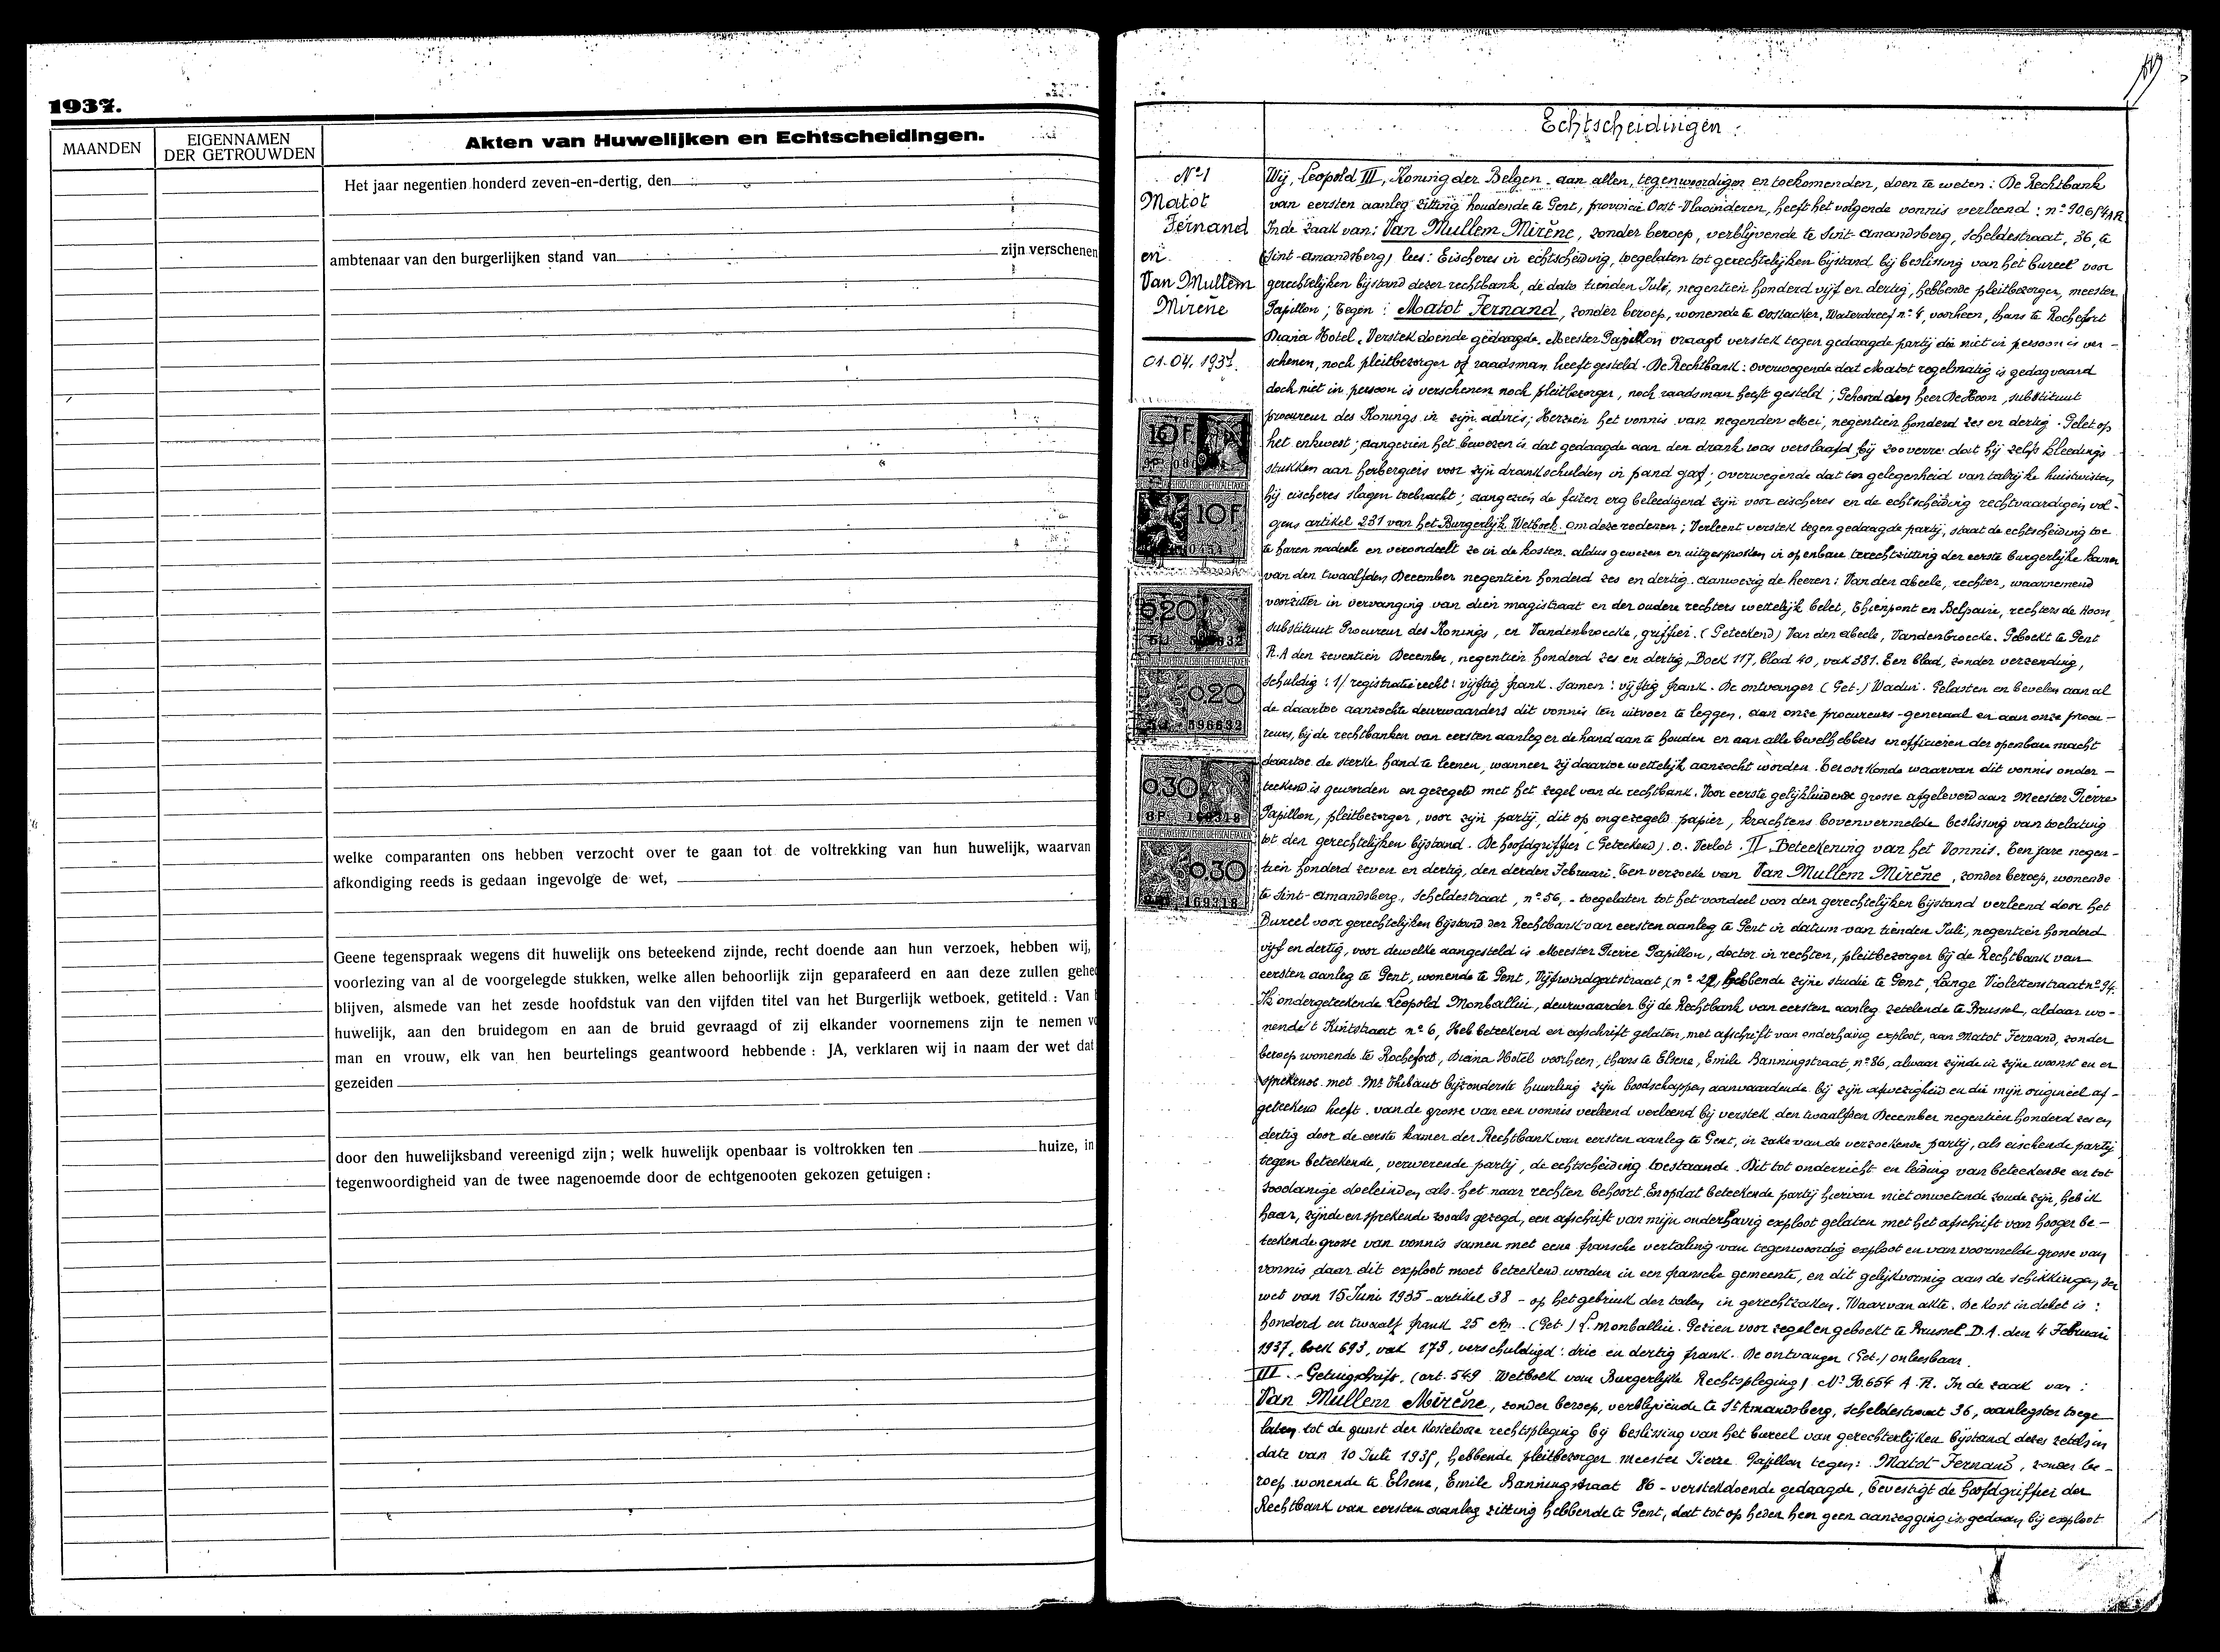 1937.
MAANDEN
EIGENNAMEN
DER GETROUWDEN
Akten van Huwelijken en Echtscheidingen.
Het jaar negentien honderd zeven-en-dertig, den
ambtenaar van den burgerlijken stand van zijn verschenen
welke comparanten ons hebben verzocht over te gaan tot de voltrekking van hun huwelijk, waarvan
afkondiging reeds is gedaan ingevolge de wet,
Geene tegenspraak wegens dit huwelijk ons beteekend zijnde, recht doende aan hun verzoek, hebben wij,
voorlezing van al de voorgelegde stukken, welke allen behoorlijk zijn geparafeerd en aan deze zullen gehe
blijven, alsmede van het zesde hoofdstuk van den vijfden titel van het Burgerlijk wetboek, getiteld : Van
huwelijk, aan den bruidegom en aan de bruid gevraagd of zij elkander voornemens zijn te nemen v
man en vrouw, elk van hen beurtelings geantwoord hebbende : JA, verklaren wij in naam der wet dat
gezeiden
door den huwelijksband vereenigd zijn ; welk huwelijk openbaar is voltrokken ten huize, in
tegenwoordigheid van de twee nagenoemde door de echtgenooten gekozen getuigen :
Echtscheidingen.
N° 1
Matot
Fernand
en
Van Mullem
Mirène
01.04.1937.
10 F
10 F
0.20
596632
0.20
596632
0.30
8P 169318
0.30
169318
Wij, Leopold III, Koning der Belgen. aan allen, tegenwoordigen en toekomenden, doen te weten : De Rechtbank
van eersten aanleg zitting houdende te Gent, provincie Oost-Vlaanderen, heeft het volgende vonnis verleend : n° 90.654 AR
In de zaak van : Van Mullem Mirène, zonder beroep, verblijvende te Sint-Amandsberg, Scheldestraat, 36, te
(Sint-Amandsberg) lees : Eischeres in echtscheiding, toegelaten tot gerechtelijken bijstand bij beslissing van het bureel voor
gerechtelijken bijstand dezer rechtbank, de dato tienden Juli, negentien honderd vijf en dertig, hebbende pleitbezorger, meester
Papillon ; Tegen : Matot Fernand, zonder beroep, wonende te Oostacker, Waterdreef n° 4, voorheen, thans te Rochefort
Diana Hotel. Verstek doende gedaagde. Meester Papillon vraagt verstek tegen gedaagde partij die niet in persoon is ver-
schenen, noch pleitbezorger of raadsman heeft gesteld. De Rechtbank : overwegende dat Matot regelmatig is gedagvaard
doch niet in persoon is verschenen noch pleitbezorger, noch raadsman heeft gesteld ; Gehoord den heer De Hoon, substituut
procureur des Konings in zijn advies ; Herzien het vonnis van negenden Mei, negentien honderd zes en dertig. Gelet op
het enkwest ; aangezien het bewezen is dat gedaagde aan den drank was verslaafd bij zooverre dat hij zelfs kleedings-
stukken aan herbergiers voor zijn drankschulden in pand gaf ; overwegende dat ten gelegenheid van talrijke huistwisten
hij eischeres slagen toebracht ; aangezien de feiten erg beleedigend zijn voor eischeres en de echtscheiding rechtvaardigen vol-
gens artikel 231 van het Burgerlijk Wetboek. Om deze redenen ; Verleent verstek tegen gedaagde partij, staat de echtscheiding toe
te haren nadeele en veroordeelt ze in de kosten. aldus gewezen en uitgesproken in openbare terechtzitting der eerste burgerlijke kamer
van den twaalfden December negentien honderd zes en dertig. aanwezig de heeren : Van den abeele, rechter, waarnemend
voorzitter in vervanging van dien magistraat en der oudere rechters wettelijk belet, Thienpont en Belpaire, rechters de Hoon,
substituut Procureur des Konings, en Vandenbroecke, griffier. (Geteekend) Van den abeele, Vandenbroecke. Geboekt te Gent
R.A den zeventien December, negentien honderd zes en dertig, Boek 117, blad 40, vak 381. Een blad, zonder verzending,
schuldig : 1/ registratierecht : vijftig frank. Samen : vijftig frank. De ontvanger (Get.) Gelasten en bevelen aan al
de daartoe aanzochte deurwaarders dit vonnis ten uitvoer te leggen, aan onze procureurs-generaal en aan onze procu-
reurs, bij de rechtbanken van eersten aanleg er de hand aan te houden en aan alle bevelhebbers en officieren der openbare macht
daartoe de sterke hand te leenen, wanneer zij daartoe wettelijk aanzocht worden. Ten oorkonde waarvan dit vonnis onder-
teekend is geworden en gezegeld met het zegel van de rechtbank. Voor eerste gelijkluidende grosse afgeleverd aan Meester Pierre
Papillon, pleitbezorger, voor zijn partij, dit op ongezegeld papier, krachtens bovenvermelde beslissing van toelating
tot den gerechtelijken bijstand. De hoofdgriffier (Geteekend). O. Verlot. II. Beteekening van het Vonnis. Een jare negen-
tien honderd zeven en dertig, den derden Februari. Ten verzoeke van Van Mullem Mirène, zonder beroep, wonende
te Sint-Amandsberg, Scheldestraat, n° 56, - toegelaten tot het voordeel van den gerechtelijken bijstand verleend door het
Bureel voor gerechtelijken bijstand der Rechtbank van eersten aanleg te Gent in datum van tienden Juli, negentien honderd
vijf en dertig, voor dewelke aangesteld is Meester Pierre Papillon, doctor in rechten, pleitbezorger bij de Rechtbank van
eersten aanleg te Gent, wonende te Gent, Vijfwindgatstraat (n° 22, hebbende zijne studie te Gent, Lange Violettenstraat n° 94.
Ik ondergeteekende Leopold Monballiu, deurwaarder bij de Rechtbank van eersten aanleg zetelende te Brussel, aldaar wo-
nende 't Kintstraat n° 6, Heb beteekend en afschrift gelaten, met afschrift van onderhavig exploot, aan Matot Fernand, zonder
beroep wonende te Rochefort, Diana Hotel voorheen, thans te Elsene, Emile Banningstraat, n° 86, alwaar zijnde in zijne woonst en er
sprekende met Mr Thibaut bijzonderste huurling zijn boodschappen aanvaardende bij zijn afwezigheid en die mijn origineel af-
geteekend heeft. van de grosse van een vonnis verleend verleend bij verstek den twaalfden December negentien honderd zes en
dertig door de eerste kamer der Rechtbank van eersten aanleg te Gent, in zake van de verzoekende partij, als eischende partij
tegen beteekende, verwerende partij, de echtscheiding toestaande. Dit tot onderricht en leiding van beteekende en tot
zoodanige doeleinden als het naar rechten behoort. En opdat beteekende partij hiervan niet onwetende zoude zijn, heb ik
haar, zijnde en sprekende zooals gezegd, een afschrift van mijn onderhavig exploot gelaten met het afschrift van hooger be-
teekende grosse van vonnis samen met eene fransche vertaling van tegenwoordig exploot en van voormelde grosse van
vonnis daar dit exploot moet beteekend worden in een fransche gemeente, en dit gelijkvormig aan de schikkingen der
wet van 15 Juni 1935 - artikel 38 - op het gebruik der talen in gerechtszaken. Waarvan akte. De kost in debet is :
honderd en twaalf frank 25 cen. (Get.) L. Monballiu. Gezien voor zegel en geboekt te Brussel D.A. den 4 Februari
1937, boek 693, vak 173, verschuldigd : drie en dertig frank. De ontvanger (Get.) onleesbaar.
III. - Getuigschrift. (art. 549 Wetboek van Burgerlijke Rechtspleging) N° 90.654 A.R. In de zaak van :
Van Mullem Mirène, zonder beroep, verblijvende te St Amandsberg, Scheldestraat 36, aanlegster toege
laten tot de gunst der kostelooze rechtspleging bij beslissing van het bureel van gerechtelijken bijstand dezes zetels in
date van 10 Juli 1935, hebbende pleitbezorger meester Pierre Papillon tegen : Matot Fernand, zonder be-
roep wonende te Elsene, Emile Banningstraat 86 - verstekdoende gedaagde, bevestigt de hoofdgriffier der
Rechtbank van eersten aanleg zitting hebbende te Gent, dat tot op heden hem geen aanzegging is gedaan bij exploot